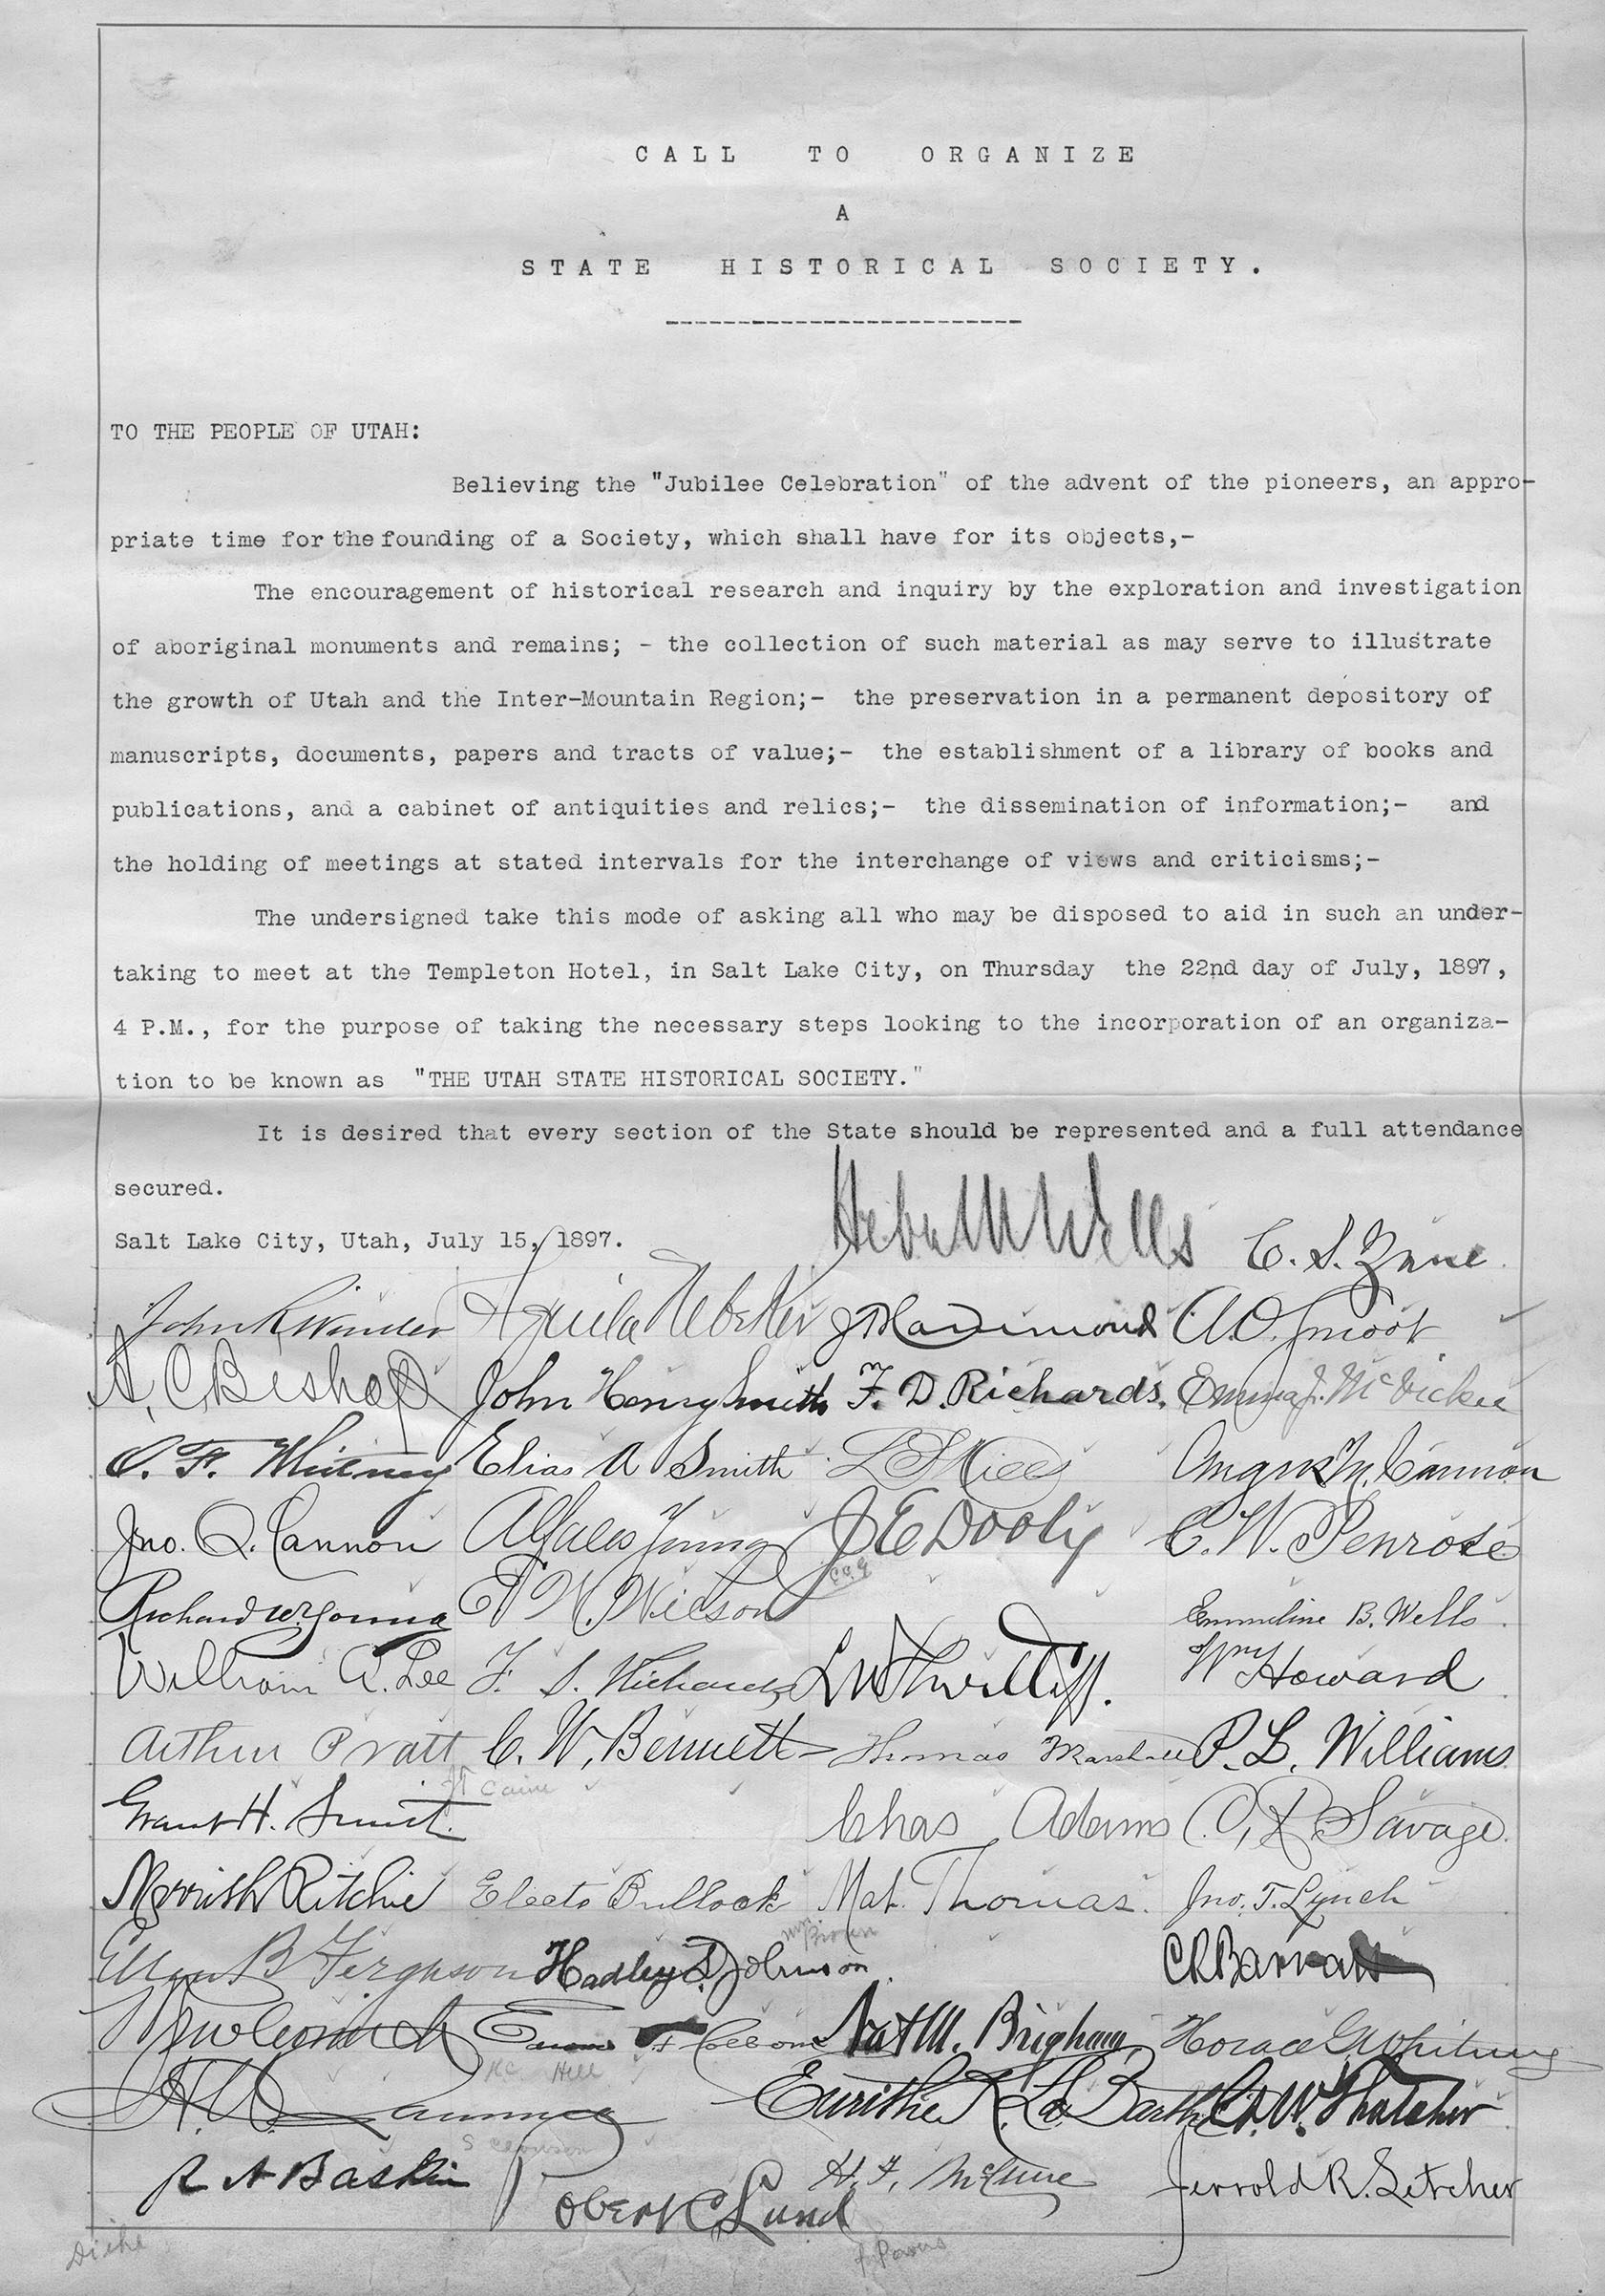 CALL TO ORGANIZE
A
STATE HISTORICAL SOCIETY.
TO THE PEOPLE OF UTAH:
Believing the "Jubilee Celebration" of the advent of the pioneers, an appro-
priate time for the founding of a Society, which shall have for its objects,-
The encouragement of historical research and inquiry by the exploration and investigation
of aboriginal monuments and remains; - the collection of such material as may serve to illustrate
the growth of Utah and the Inter-Mountain Region;- the preservation in a permanent depository of
manuscripts, documents, papers and tracts of value;- the establishment of a library of books and
publications, and a cabinet of antiquities and relics;- the dissemination of information;- and
the holding of meetings at stated intervals for the interchange of views and criticisms;-
The undersigned take this mode of asking all who may be disposed to aid in such an under-
taking to meet at the Templeton Hotel, in Salt Lake City, on Thursday the 22nd day of July, 1897,
4 P.M., for the purpose of taking the necessary steps looking to the incorporation of an organiza-
tion to be known as "THE UTAH STATE HISTORICAL SOCIETY."
It is desired that every section of the State should be represented and a full attendance
secured.
Salt Lake City, Utah, July 15, 1897.
Heber M Wells C. S. Zane
John R Winder Aquila Nebeker A.O. Smoot
A. C. Bishop John Henry Smith F. D. Richards. Emma J. McVicker
O. F. Whitney Elias A Smith Angus M. Cannon
Jno. Q. Cannon Alfales Young J E Dooly C. W. Penrose
Richard W. Young Emmeline B. Wells
William A. Lee F. S. Richards Wm Howard
Arthur Pratt C. W. Bennett Thomas Marshall P. L. Williams
Caine
Grant H. Smith Chas Adams C. R. Savage
Morrish Ritchie Electa Bullock Mat. Thomas. Jno. T. Lynch
Mrs Brown
Ellen B Ferguson Hadley D. Johnson C R Barratt
Nat M. Brigham Horace G. Whitney
Hill
Eurithe K. La Barthe G. W. Thatcher
R N Baskin Robert C Lund Jerrold R. Letcher
Powers